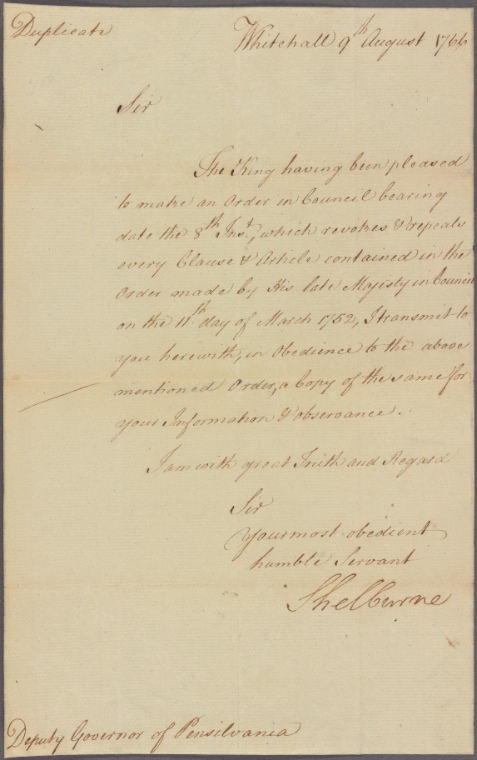 Duplicate
Whitehall 9th August 1766
Sir
The King having been pleased
to make an Order in Council bearing
date the 8th Inst., which revokes & repeals
every Clause & Article contained in the
Order made by His late Majesty in Council
on the 11th day of March 1752, I transmit to
you herewith, in Obedience to the above
mentioned Order, a Copy of the same for
your Information & observance.
I am with great Truth and Regard
Sir
Your most obedient
humble Servant
Shelburne
Deputy Governor of Pensilvania